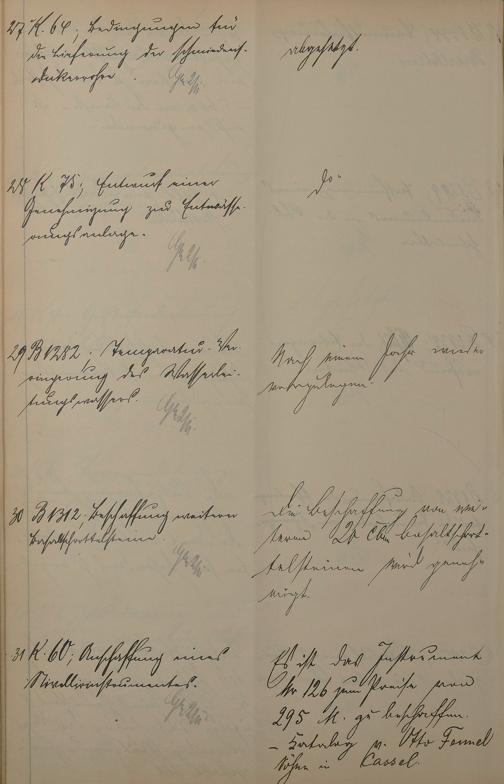 27 K. 64; Bedingungen für
die Lieferung der schmiedeis.
Dükerrohre.
abgesetzt.
28 K 75; Entwurf einer
Genehmigung zur Entwässe-
rungsanlage.
do.
29 B 1282. Temperatur-Ver-
ringerung des Wasserlei-
tungswassers.
Nach einem Jahr wieder
vorzulegen.
30 B 1312. Beschaffung weiterer
Basaltschrottelsteine
Die Beschaffung von wei-
teren 20 cbm Basaltschrot-
telsteinen wird geneh-
migt.
31 K. 60; Anschaffung eines
Nivellirinstrumentes.
Es ist das Instrument
Nr 126 zum Preise von
295 M. zu beschaffen.
- Katalog v. Otto Fennel
Söhne in Cassel.